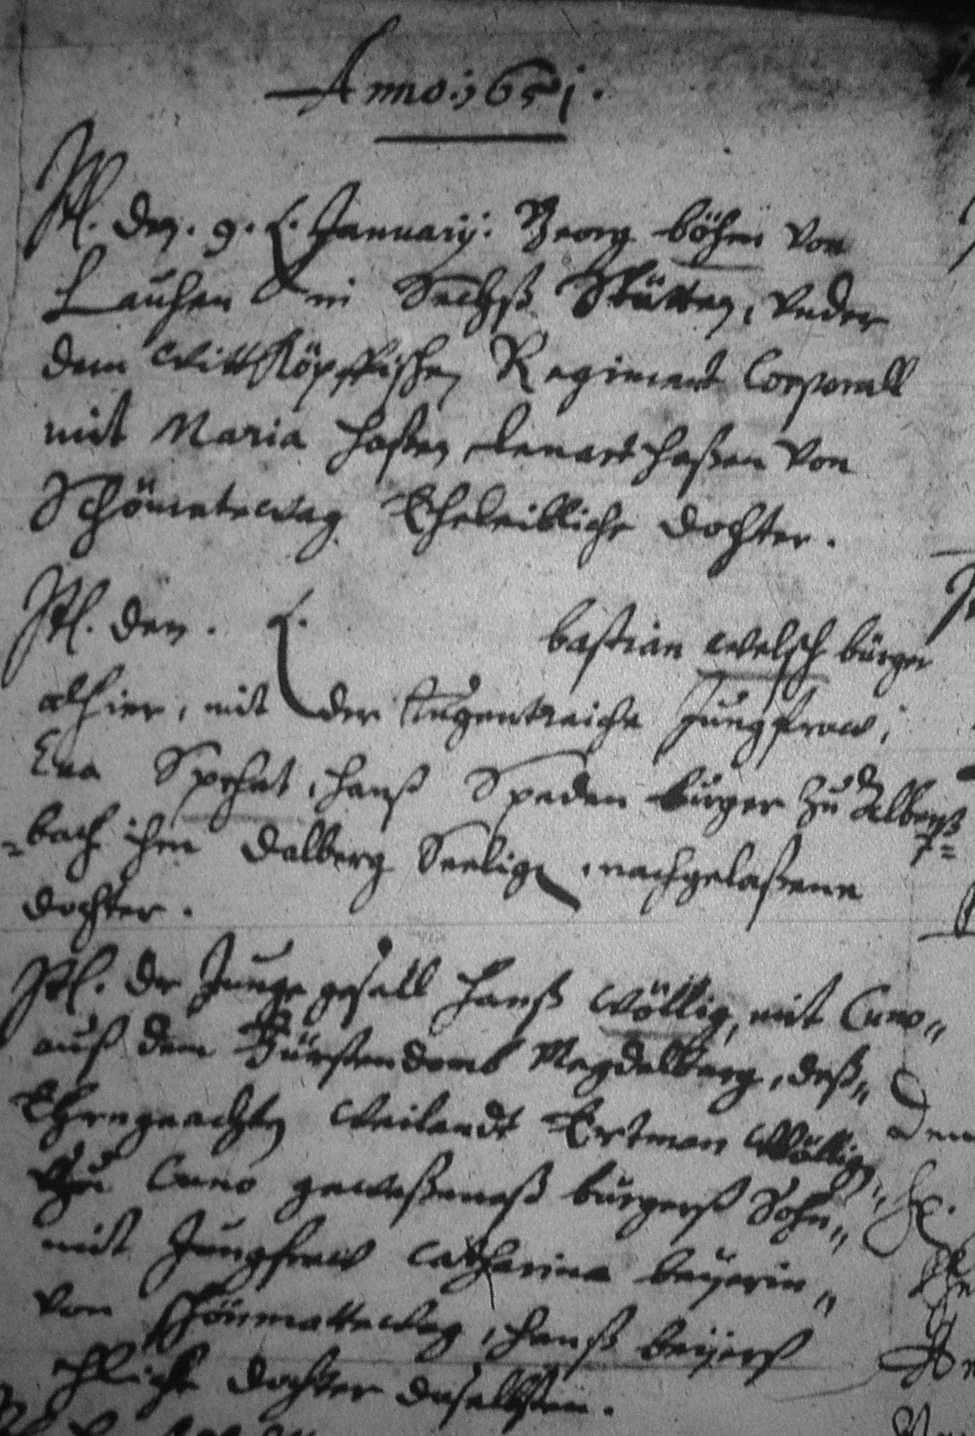 Anno: 1651.
Itl. den. 9. Januarij. Georg Böhm von
Laucher in Sechß Stätten, under
dem Wittköpffischen Regiment Corporall
mit Maria haßen, Lenart haßen von
Schönmetewag Eheleibliche dochter.
Itl. den. bastian Welsch bürger
alhier, mit der tugentreiche Jungfraw,
Eva Spehet, hanß Speden bürger zu Alberß
bach ihm Dalberg Seelig, nachgelaßene
dochter.
Itl. der Junge gesell hanß Wöllig, mit Cuno
auß dem Fürstendomb Magdelberg, deß
Ehrngeachten weilandt Ertman Wöllig
zu Cuno geweßeneß burgerß Sohn
mit Jungfraw Catharina beyerin
von schönmattewag, hanß beyerß
ehliche dochter daselbsten.